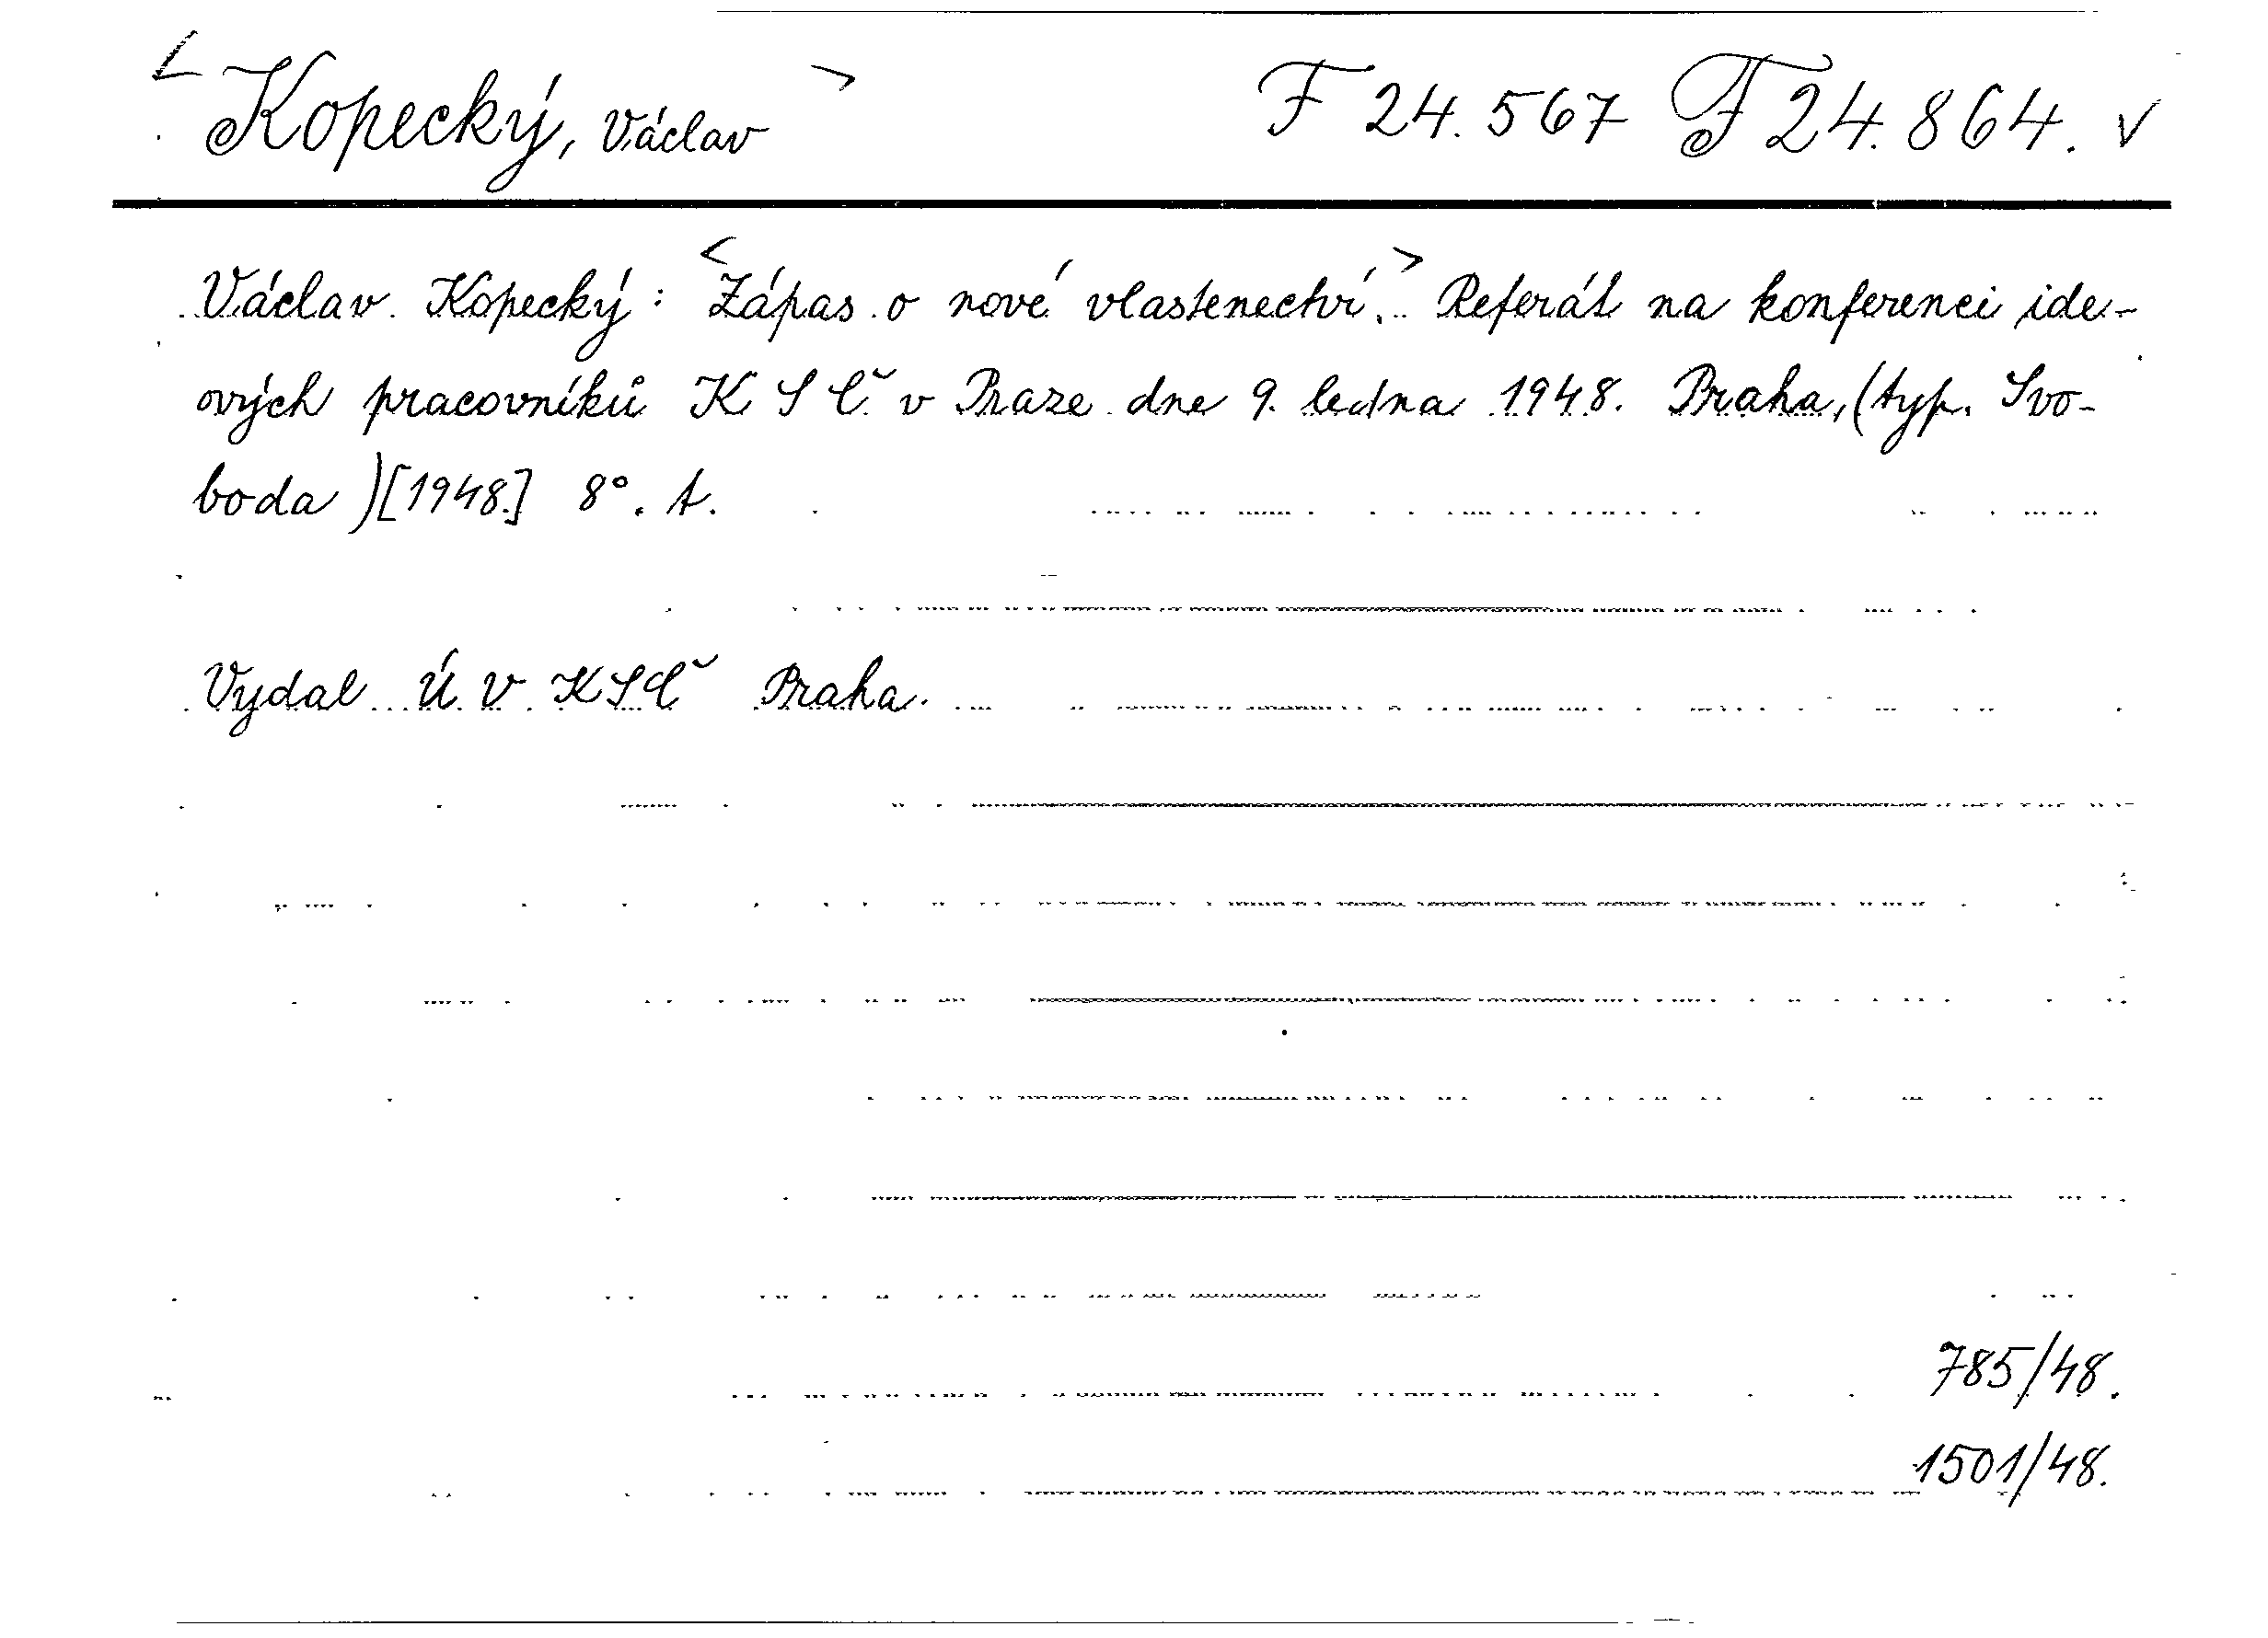 <Kopecký, Václav> F 24.567 F 24.864. v
Václav Kopecký: <Zápas o nové vlastenectví.> Referát na konferenci ide-
ových pracovníků K S Č v Praze dne 9. ledna 1948. Praha, (typ. Svo-
boda) [1948.] 8°. t.
Vydal Ú V KSČ Praha.
785/48.
1501/48.